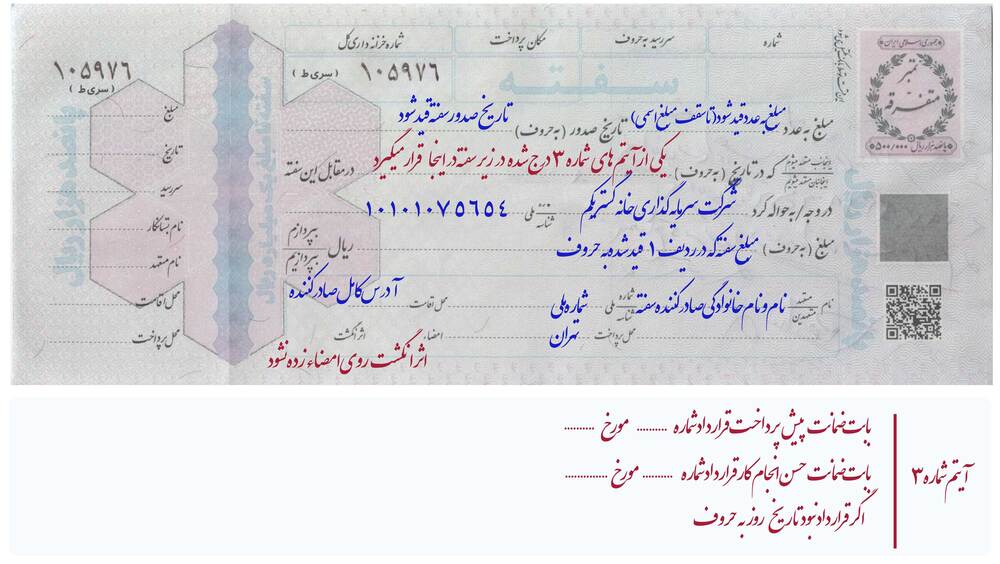 شماره
سررسید به حروف
مکان پرداخت
شماره خزانه داری کل
جمهوری اسلامی ایران
تمبر
متفرقه
پانصد هزار ریال
۵۰۰/۰۰۰
سفته
۱۰۵۹۷۶
(سری ط)
۱۰۵۹۷۶
(سری ط)
مبلغ به عدد مبلغ به عدد قید شود (تا سقف مبلغ اسمی) تاریخ صدور (به حروف) تاریخ صدور سفته قید شود
اینجانب متعهد میشوم
اینجانبان متعهد میشویم
که در تاریخ (به حروف) یکی از آیتم های شماره ۳ درج شده در زیر سفته در اینجا قرار میگیرد در مقابل این سفته
در وجه / به حواله کرد شرکت سرمایه گذاری خانه گستر یکم شناسه ملی ۱۰۱۰۱۰۷۵۶۵۴
مبلغ (به حروف) مبلغ سفته که در ردیف ۱ قید شده به حروف ریال
بپردازم
بپردازیم
نام متعهد
متعهدین
نام و نام خانوادگی صادر کننده سفته
شماره
شناسه
ملی شماره ملی محل اقامت آدرس کامل صادر کننده
محل پرداخت تهران امضاء اثر انگشت
اثر انگشت روی امضاء زده نشود
مبلغ
تاریخ
سررسید
نام بستانکار
نام متعهد
محل اقامت
محل پرداخت
آیتم شماره ۳
بابت ضمانت پیش پرداخت قرارداد شماره .......... مورخ ..........
بابت ضمانت حسن انجام کار قرارداد شماره .......... مورخ ..............
اگر قرارداد نبود تاریخ روز به حروف